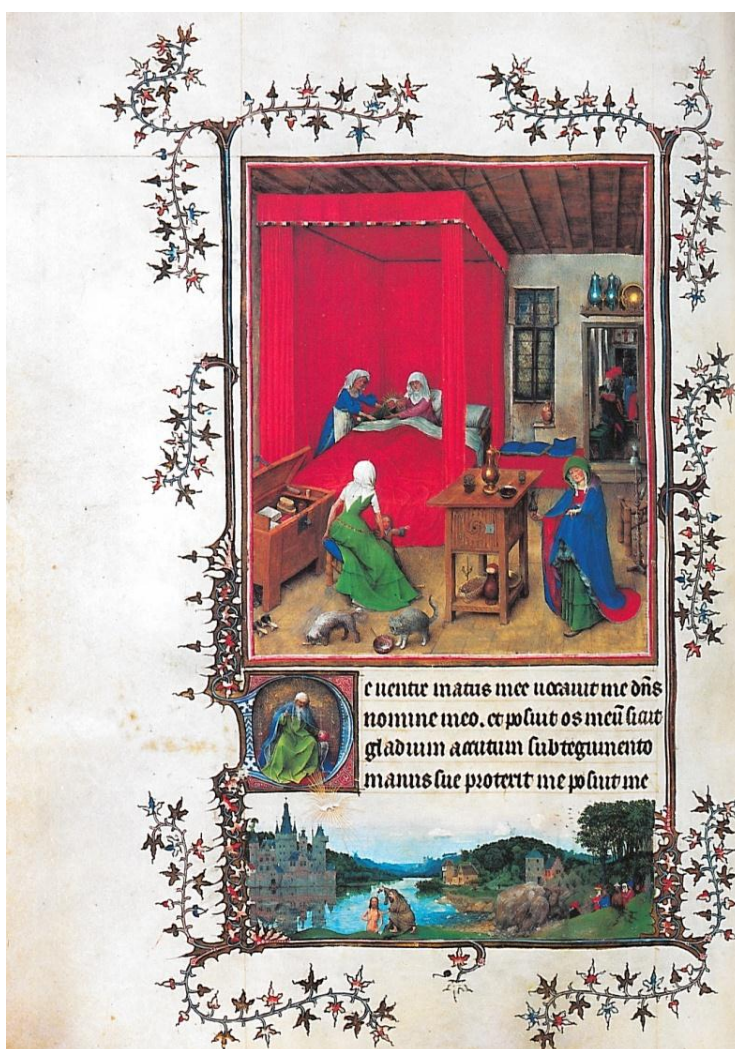 De ventre matris mee vocavit me dñs
nomine meo. et posuit os meū sicut
gladium accutum sub tegumento
manus sue protexit me posuit me